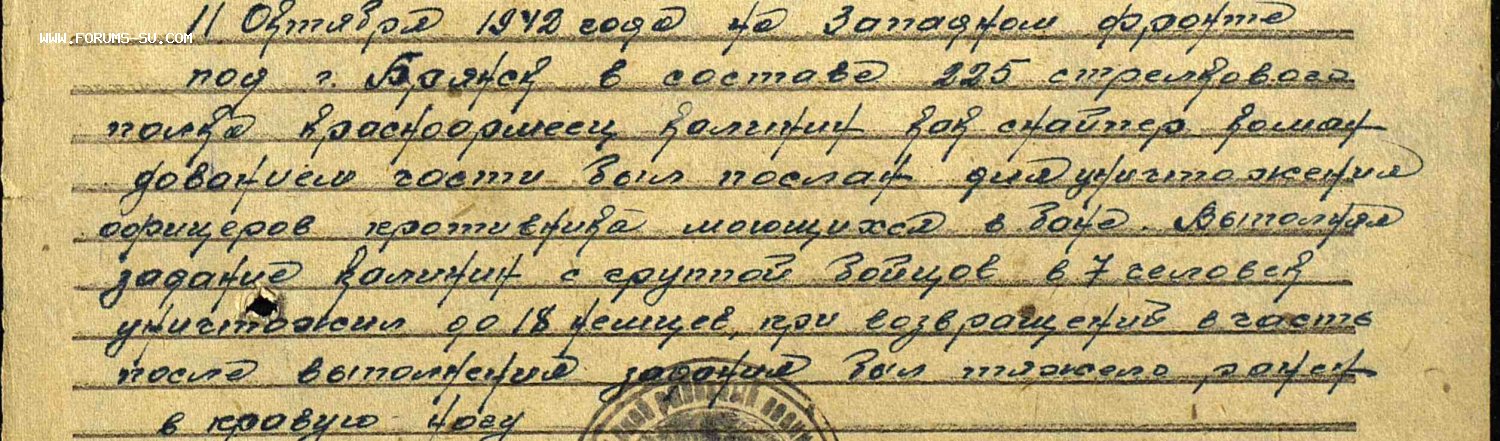 11 Октября 1942 года на Западном фронте
WWW.FORUMS-SU.COM
под г. Брянск в составе 225 стрелкового
полка красноармеец Калинин как снайпер коман
дованием части был послан для уничтожения
офицеров противника моющихся в бане. Выполняя
задание Калинин с группой бойцов в 7 человек
уничтожил до 18 немцев, при возвращений в часть
после выполнения задания был тяжело ранен
в правую ногу